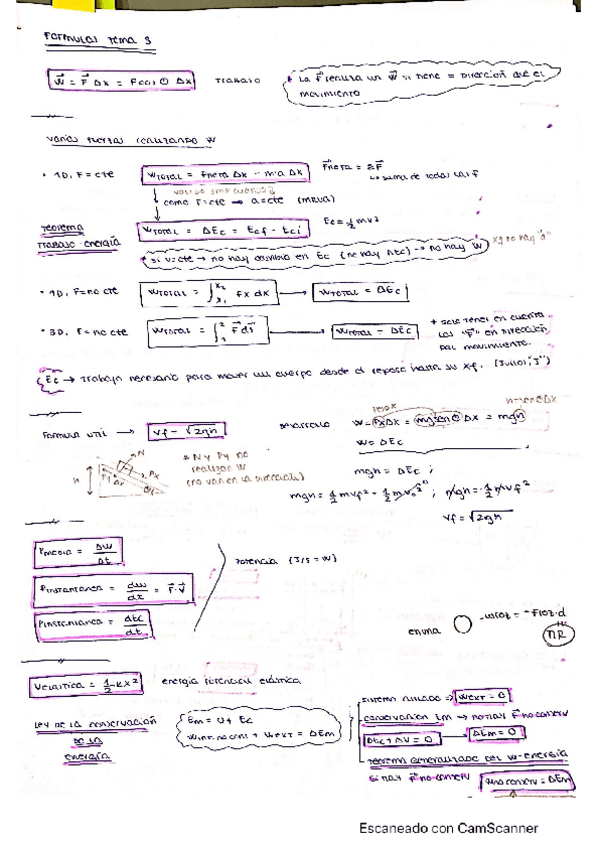 FORMULAS TEMA 3
W = F Δx = F cos θ Δx TRABAJO * La F realiza un W si tiene = dirección que el
movimiento
varias fuerzas realizando W
• 1D, F = cte W TOTAL = Fneta Δx = m·a Δx Fneta = ΣF
↳ suma de todas las F
como F = cte → a = cte (mrua)
TEOREMA
TRABAJO-ENERGÍA
W TOTAL = ΔEc = Ecf - Eci Ec = ½ mv²
* si v = cte → no hay cambio en Ec (no hay ΔEc) → no hay W xq no hay "a"
• 1D, F = no cte W TOTAL = ∫ Fx dx → W TOTAL = ΔEc
• 3D, F = no cte W TOTAL = ∫ F dr → W TOTAL = ΔEc
* solo tener en cuenta
las "F" en dirección
del movimiento.
Ec → Trabajo necesario para mover un cuerpo desde el reposo hasta su xf. (Julios, "J")
Formula util → vf = √2gh Desarrollo W = Px Δx = mg sen θ Δx = mgh
W = ΔEc
* N y Py no
realizan W
h N Px Py Δx
mgh = ΔEc ;
mgh = ½ mvf² - ½ mv₀² ; mgh = ½ mvf²
vf = √2gh
Pmedia = ΔW/Δt
Pinstantanea = dW/dt = F·v Potencia (J/s = W)
Pinstantanea = dEc/dt
en una -Wroz = -Froz·d
Velastica = ½ kx² energía potencial elástica
LEY DE LA CONSERVACIÓN
DE LA
ENERGÍA
Em = U + Ec
Wint.no cons + Wext = ΔEm
sistema aislado → Wext = 0
conservación Em → no hay F no conserv
ΔEc + ΔU = 0 → ΔEm = 0
Teorema generalizado del W-energía
si hay F no conserv Wno conserv = ΔEm
Escaneado con CamScanner